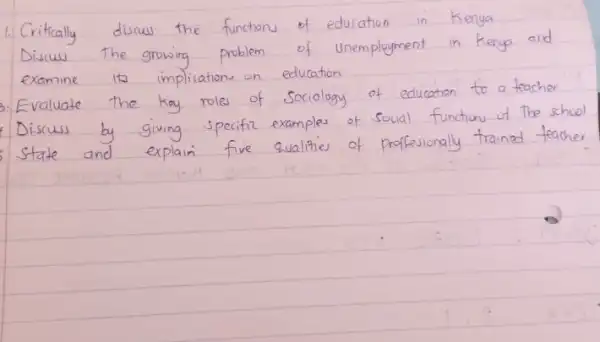 1. Critically discuss the functions of education in Kenya
Discuss The growing problem of Unemployment in Kenya and
examine its implications on education
3. Evaluate The key roles of Sociology of education to a teacher
4 Discuss by giving specific examples of Social functions of The school
5 State and explain five qualities of proffesionally trained teacher